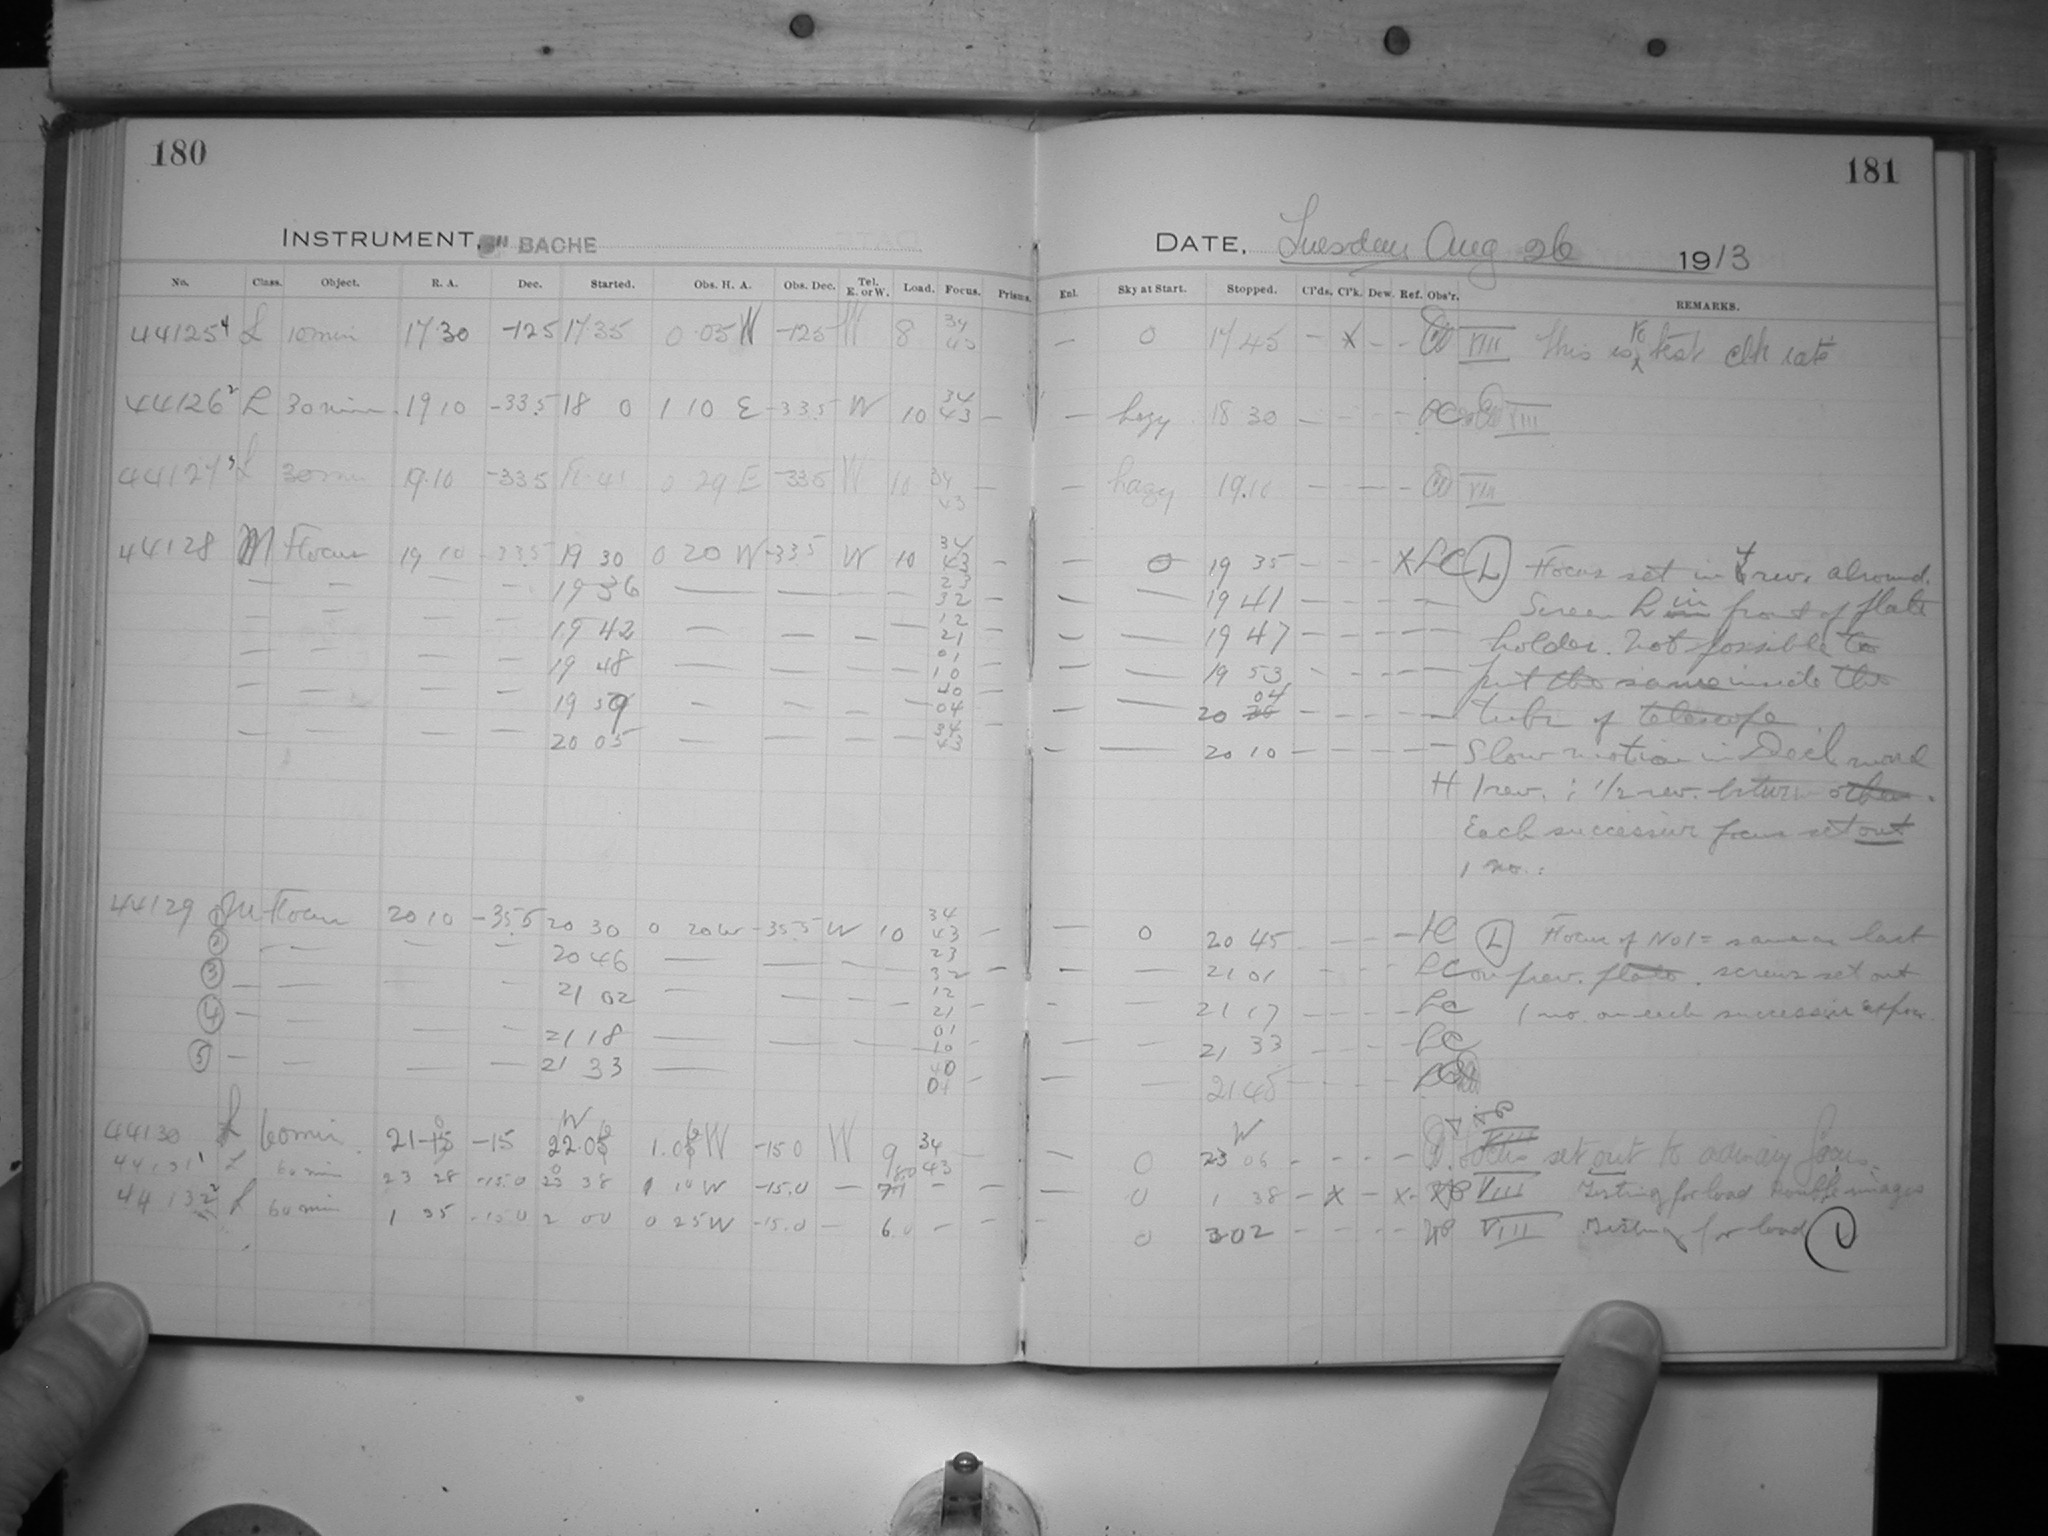 180
181
INSTRUMENT, 8" BACHE
DATE, Tuesday Aug 26 1913
No. Class. Object. R. A. Dec. Started. Obs. H. A. Obs. Dec. Tel. E. or W. Load. Focus. Prisms. Enl. Sky at Start. Stopped. Cl'ds. Cl'k. Dew. Ref. Obs'r. REMARKS.
44125 4 L 10 min 17 30 -12 5 17 35 0 05 W -12 5 W 8 34 43 — 0 17 45 — X — — VIII This is to test clk rate
44126 2 L 30 min 19 10 -33.5 18 0 1 10 E -33.5 W 10 34 43 — — hazy 18 30 — — — — LC VIII
44127 3 L 30 min 19.10 -33 5 0 29 E -33 5 W 10 34 43 — — hazy 19.10 — — — — VIII
44128 M Focus 19 10 -33.5 19 30 0 20 W -33 5 W 10 34 43 — 0 19 35 — — — X LC L Focus set in rev. around.
— — — — 19 36 — — — — 23 32 — — — 19 41 — — — — Screen in front of plate
— — — — 19 42 — — — — 12 21 — — — 19 47 — — — — holder. Not possible to
— — — — 19 48 — — — — 01 10 — — — 19 53 — — — — put the same inside the
— — — — 19 59 — — — — 40 04 — — — 20 04 — — — — tube of telescope.
— — — — 20 05 — — — — 34 43 — — 20 10 — — — — Slow motion in Decl moved
1 rev. : 1/2 rev. between others.
Each successive focus set out
1 no.
44129 1 M Focus 20 10 -35 5 20 30 0 20 W -35.5 W 10 34 43 — — 0 20 45 — — — — LC L Focus of No 1 = same as last
2 — — — — 20 46 — — — — 23 32 — — — 21 01 — — — LC on prev. plate. screws set out
3 — — — — 21 02 — — — — 12 21 — — — 21 17 — — — LC 1 no. on each successive expos.
4 — — — — 21 18 — — — — 01 10 — — 21 33 — — — LC
5 — — — — 21 33 — 40 04 — — — 21 45 — — — LC
44130 L 60 min 21 -15 W 22.06 1.06 W -15 0 W 9 34 43 — — 0 W 23 06 — — — — VIII Focus set out to ordinary focus.
44131 1 L 60 min 23 28 -15.0 38 1 10 W -15.0 — — — — 0 1 38 — X — X VIII Testing for load double images
44132 2 L 60 min 1 35 -15 0 2 00 0 25 W -15.0 — 6 0 — — — 0 3 02 — — — — VIII Testing for load L